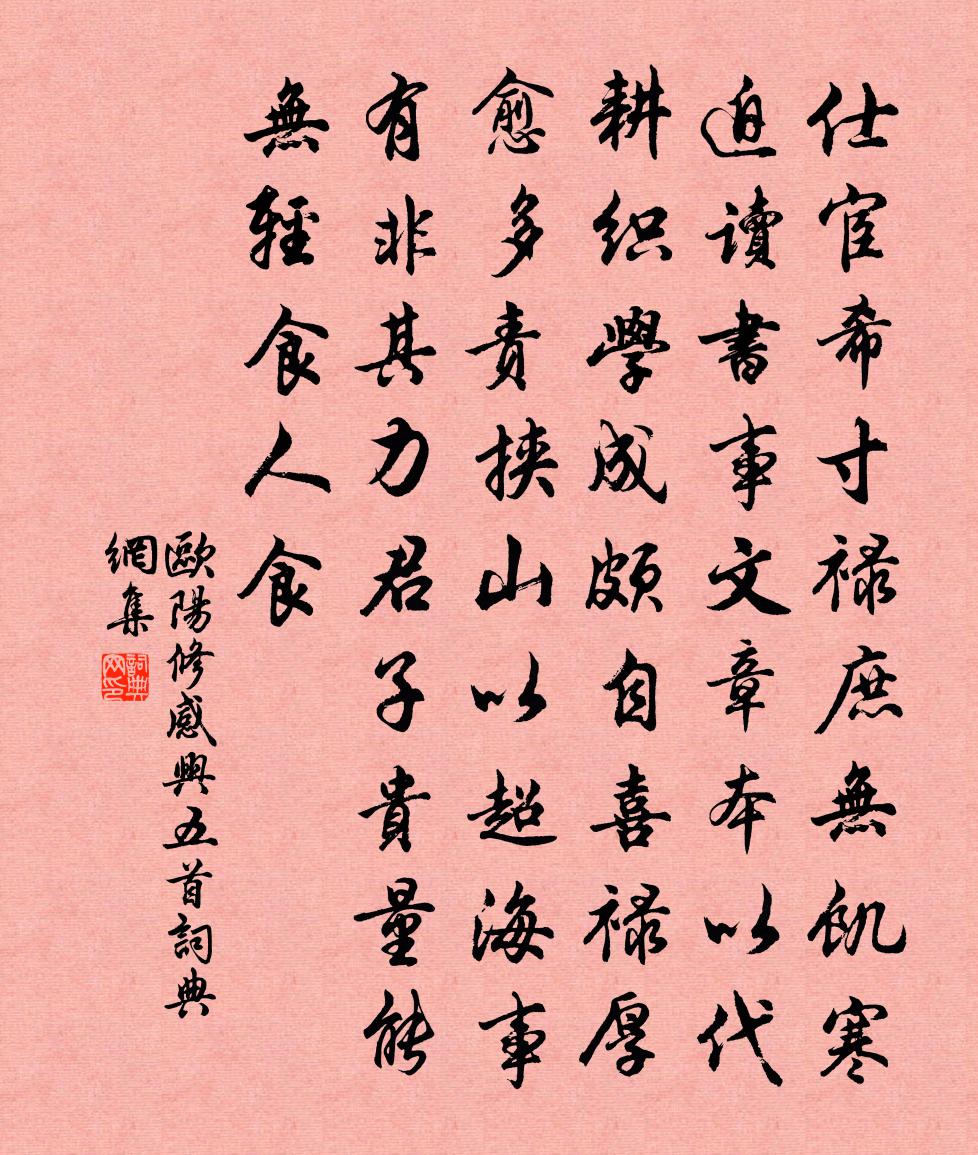 仕宦希寸禄庶無飢寒
迫讀書事文章本以代
耕织學成頗自喜禄厚
愈多責挟山以超海事
有非其力君子貴量能
無輕食人食
歐陽修感興五首詞典
網集
詞典網印